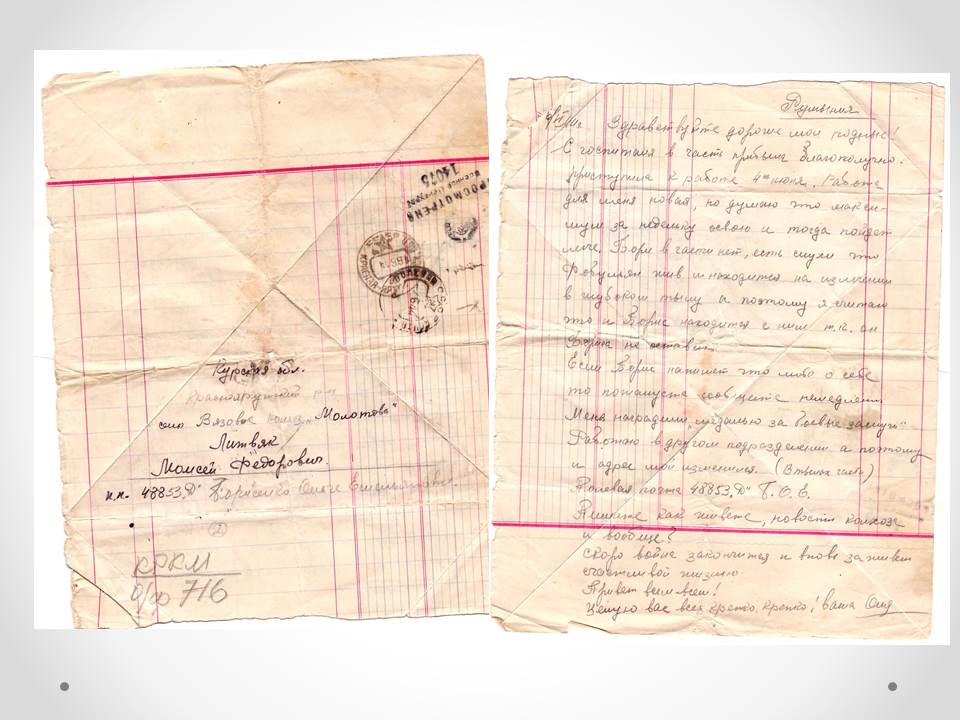 ПРОСМОТРЕНО
Военной Цензурой
14075
Курская обл.
Краснояружский р-н
село Вязовое колхоз „Молотова"
Литвяк
Моисей Федорович.
п.п. 48853 „Д" Борисенко Ольге Емельяновне.
(2)
КРКМ
716
Румыния
Здравствуйте дорогие мои родные!
С госпиталя в часть прибыла благополучно.
приступила к работе 4го июня. Работа
для меня новая, но думаю что макси-
мум за недельку освою и тогда пойдет
легче. Бори в части нет, есть слухи что
жив и находится на излечении
в глубоком тылу а поэтому я считаю
что и Борис находится с ним т.к. он
Бориса не оставит.
Если Борис напишет что либо о себе
то пожалуста сообщите немедленно
Меня наградили „медалью за боевые заслуги"
Работаю в другом подразделении а поэтому
и адрес мой изменился. (В тылах части)
Полевая почта 48853 „Д" Б. О. Е.
Пишите как живете, новости колхоза
и вообще?
Скоро война закончится и вновь заживем
счастливой жизнью.
Привет всем всем!
Целую вас всех крепко, крепко! Ваша Оля